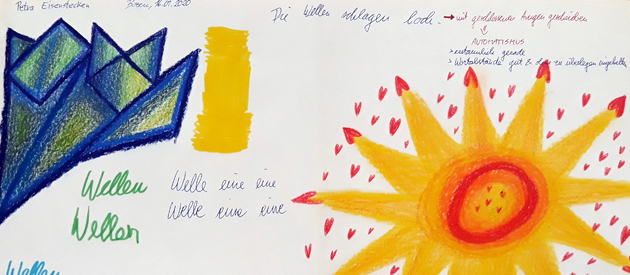 Petra Eisenstecken
Bozen, 16.01.2020
Die Wellen schlagen hoch. → mit geschlossenen Augen geschrieben
AUTOMATISMUS
> erstaunlich gerade
> Wortabstände gut & ohne zu überlegen eingehalten
Wellen
Wellen
Welle eine eine
Welle eine eine
Wellen